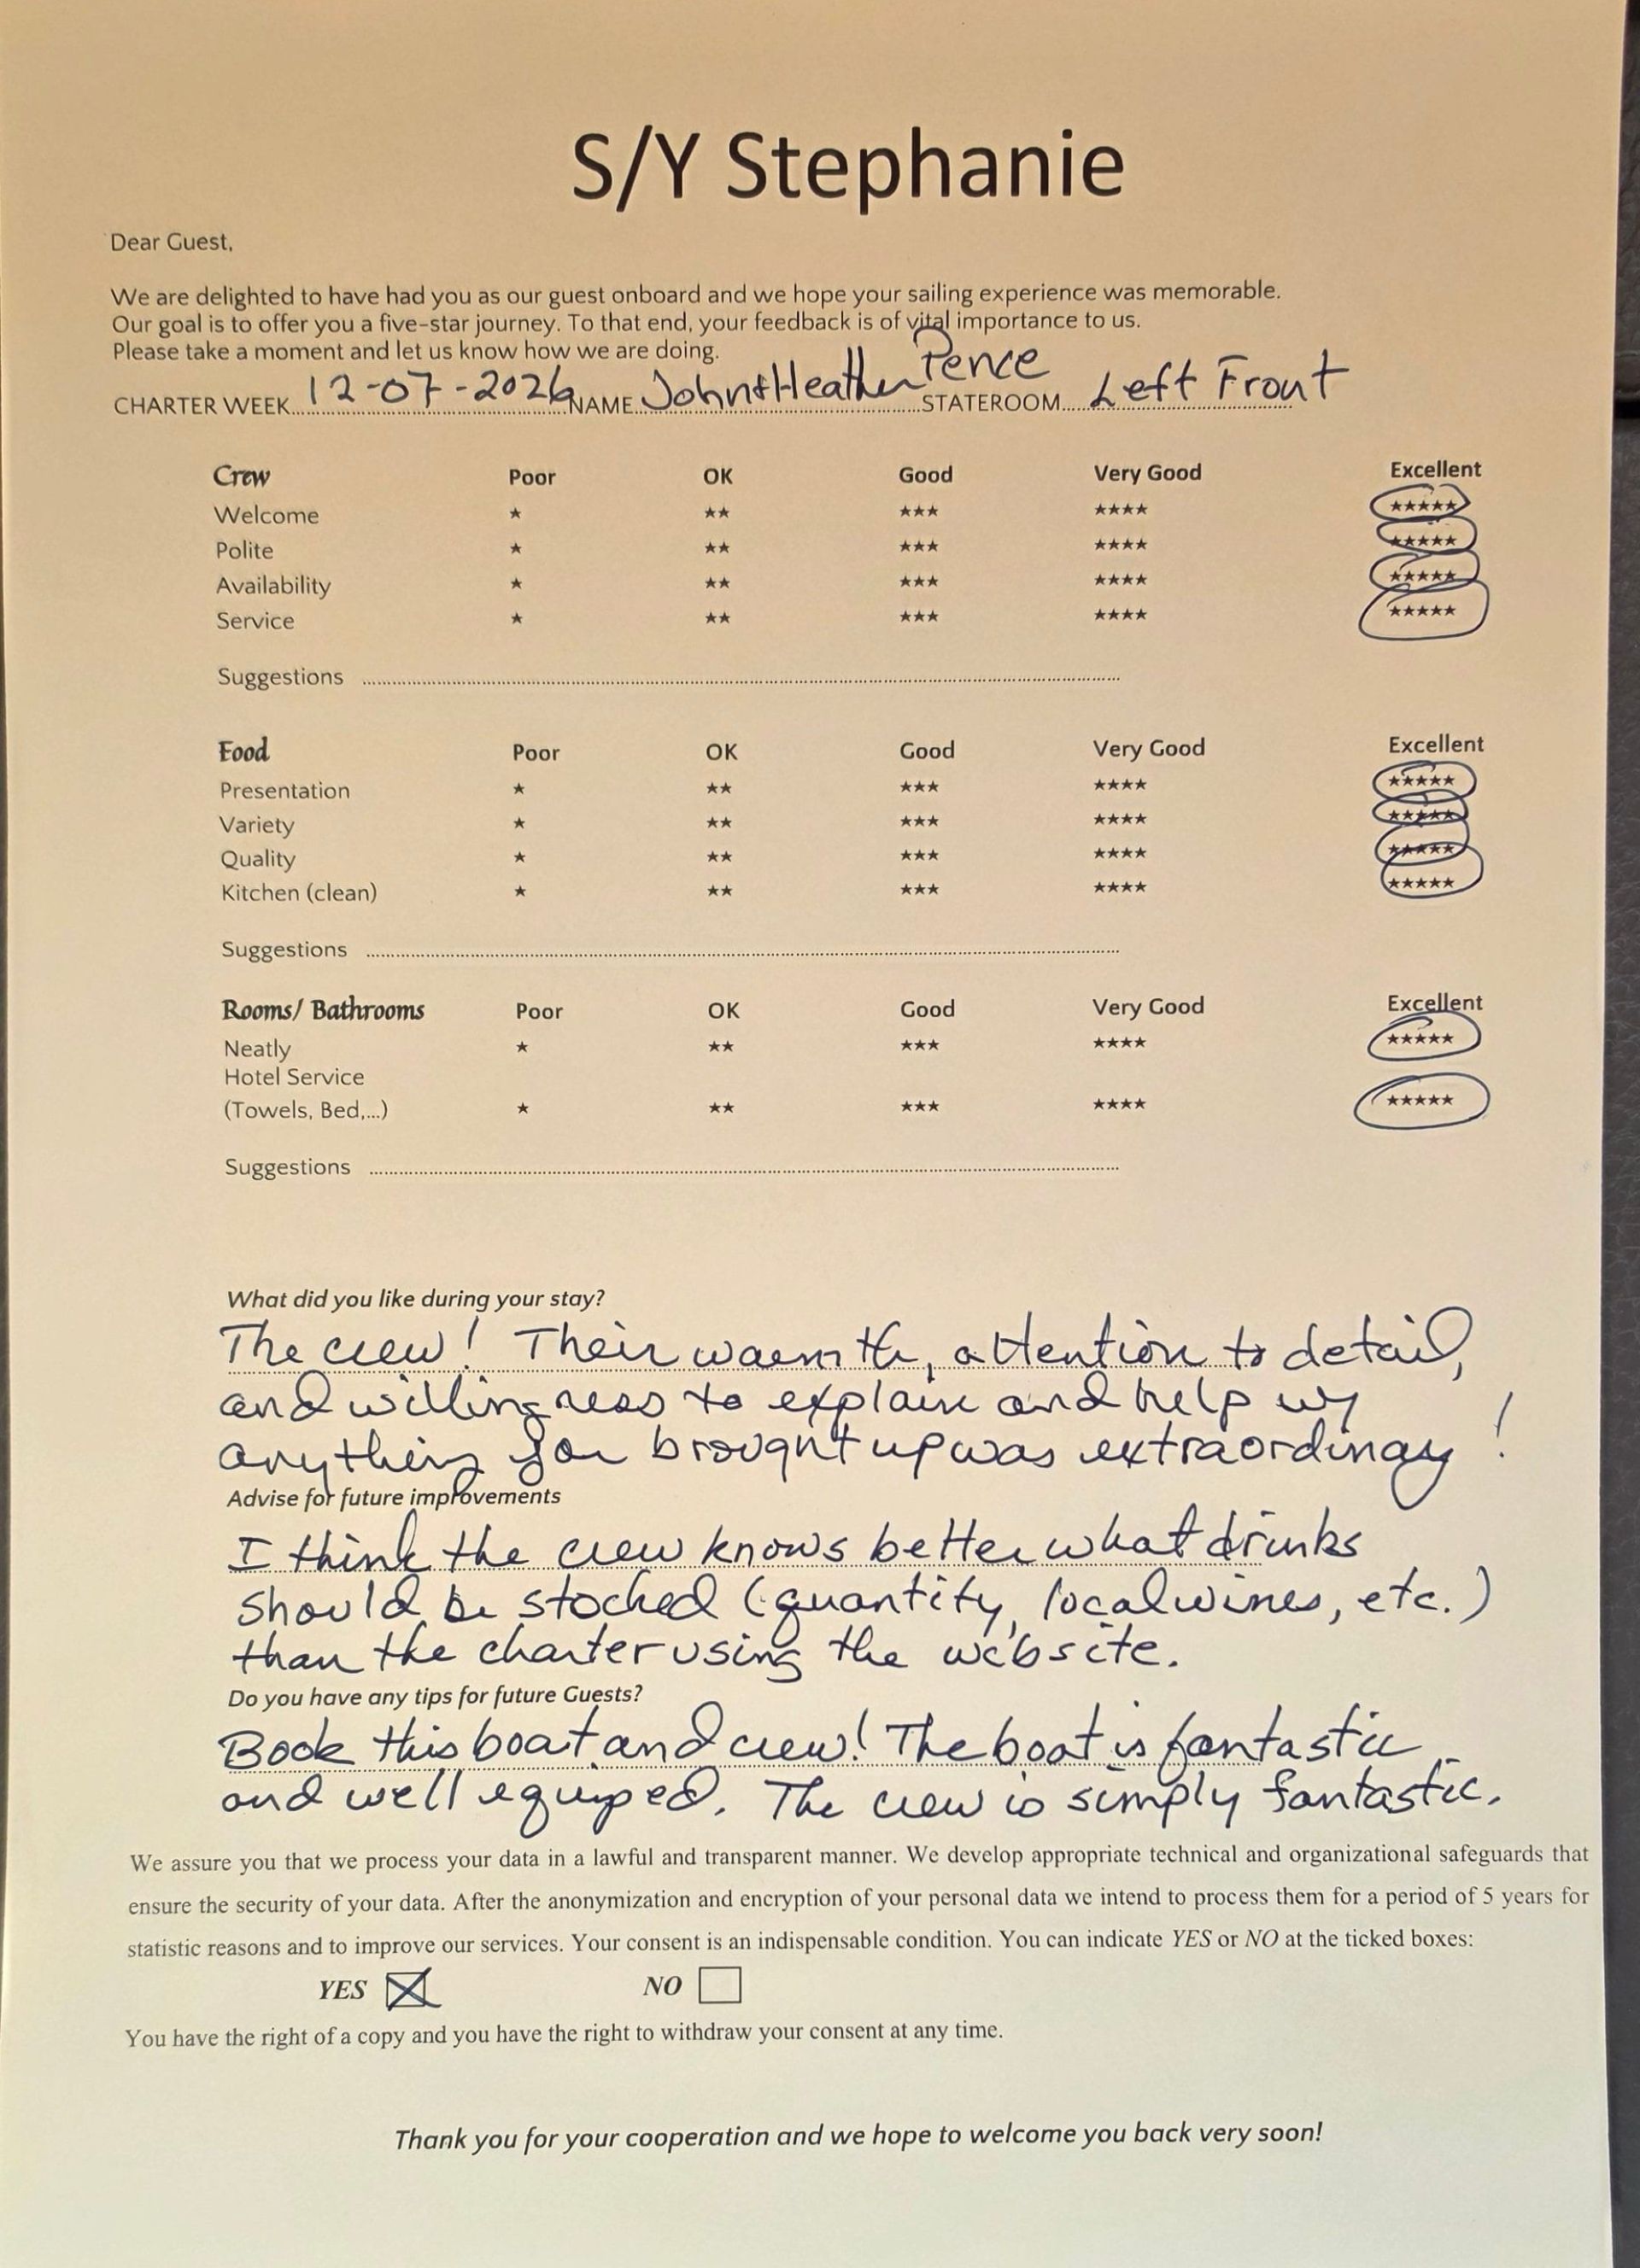 S/Y Stephanie
Dear Guest,
We are delighted to have had you as our guest onboard and we hope your sailing experience was memorable.
Our goal is to offer you a five-star journey. To that end, your feedback is of vital importance to us.
Please take a moment and let us know how we are doing.
CHARTER WEEK 12-07-2026 NAME John & Heather Pence STATEROOM Left Front
Crew Poor OK Good Very Good Excellent
Welcome ★ ★★ ★★★ ★★★★ ★★★★★
Polite ★ ★★ ★★★ ★★★★ ★★★★★
Availability ★ ★★ ★★★ ★★★★ ★★★★★
Service ★ ★★ ★★★ ★★★★ ★★★★★
Suggestions
Food Poor OK Good Very Good Excellent
Presentation ★ ★★ ★★★ ★★★★ ★★★★★
Variety ★ ★★ ★★★ ★★★★ ★★★★★
Quality ★ ★★ ★★★ ★★★★ ★★★★★
Kitchen (clean) ★ ★★ ★★★ ★★★★ ★★★★★
Suggestions
Rooms/ Bathrooms Poor OK Good Very Good Excellent
Neatly ★ ★★ ★★★ ★★★★ ★★★★★
Hotel Service
(Towels, Bed,...) ★ ★★ ★★★ ★★★★ ★★★★★
Suggestions
What did you like during your stay?
The crew! Their warmth, attention to detail,
and willingness to explain and help w/
anything you brought up was extraordinay!
Advise for future improvements
I think the crew knows better what drinks
should be stocked (quantity, local wines, etc.)
than the charter using the website.
Do you have any tips for future Guests?
Book this boat and crew! The boat is fantastic
and well equiped. The crew is simply fantastic.
We assure you that we process your data in a lawful and transparent manner. We develop appropriate technical and organizational safeguards that
ensure the security of your data. After the anonymization and encryption of your personal data we intend to process them for a period of 5 years for
statistic reasons and to improve our services. Your consent is an indispensable condition. You can indicate YES or NO at the ticked boxes:
YES ☒ NO ☐
You have the right of a copy and you have the right to withdraw your consent at any time.
Thank you for your cooperation and we hope to welcome you back very soon!